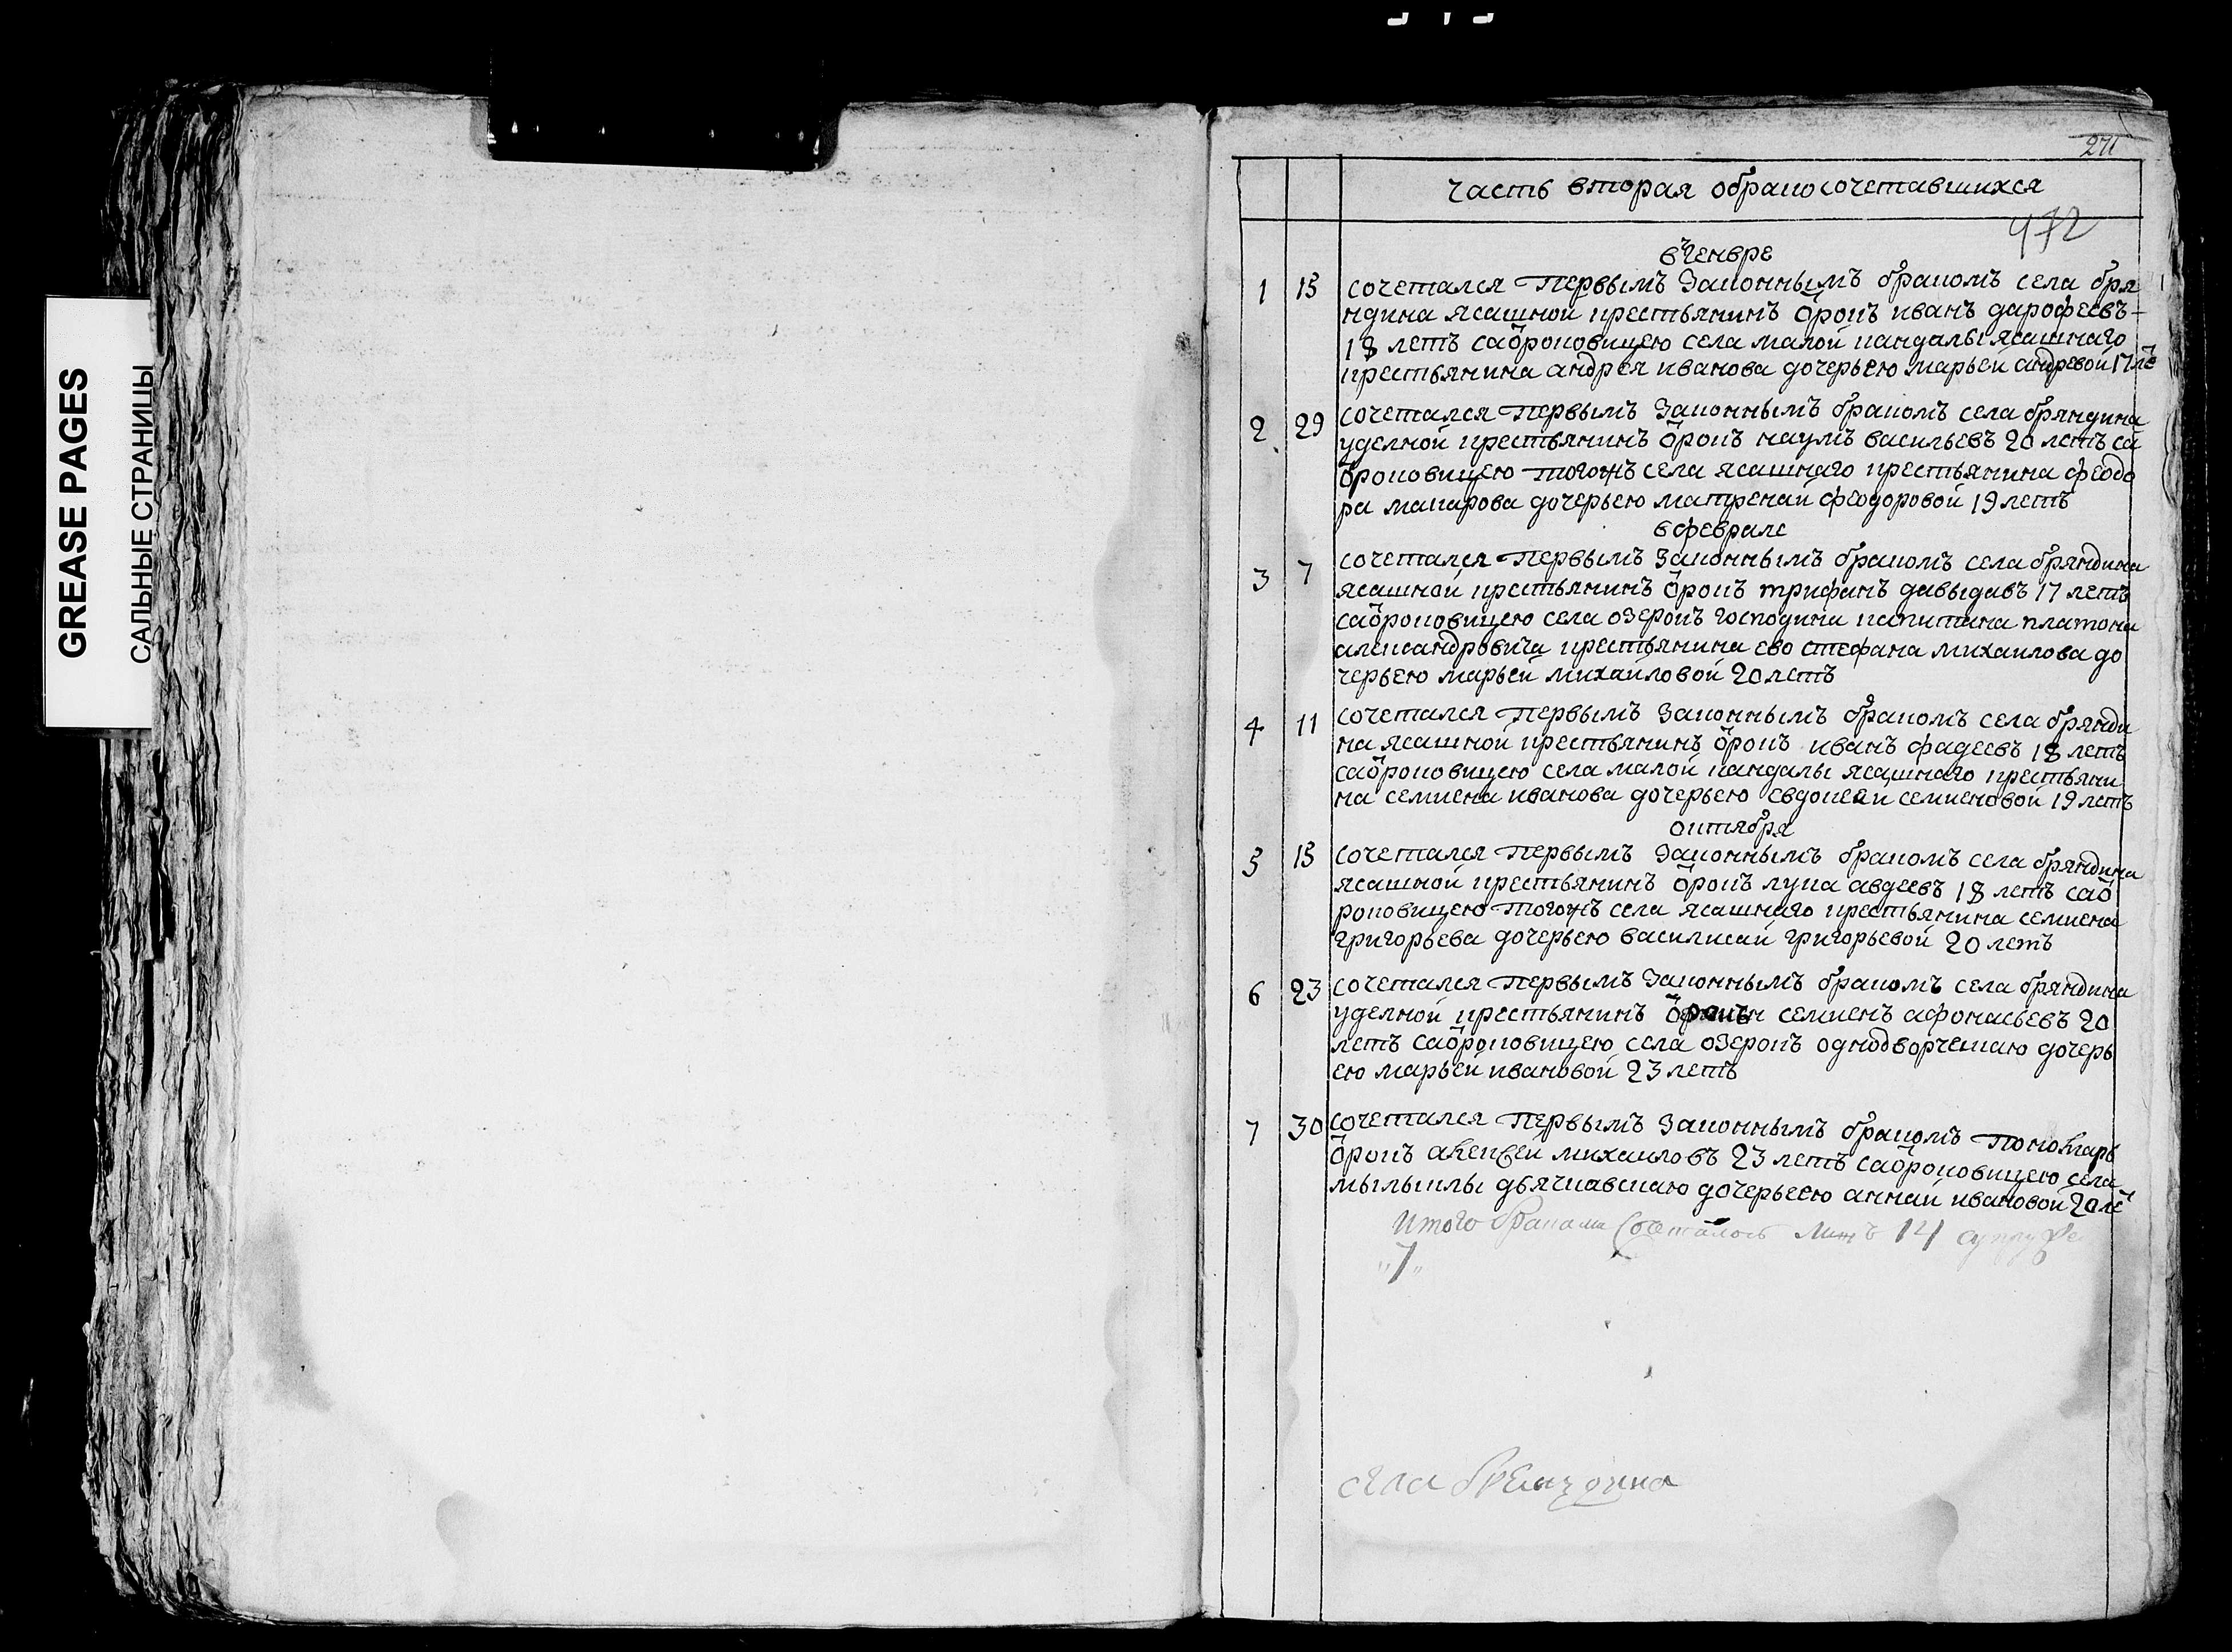 GREASE PAGES
САЛЬНЫЕ СТРАНИЦЫ
271
часть вторая обракосочетавшихся
472
вгенвре
1 15 сочетался первымъ законнымъ бракомъ села бря
ндина ясашной крестьянинъ ѻрокъ иванъ дарофеевъ
18 летъ саѻроковицею села малой кандалы ясашнаго
крестьянина андрея иванова дочерьею марьей андревой 17 ле
2 29 сочетался первымъ законнымъ бракомъ села бряндина
уделной крестьянинъ ѻрокъ наумъ васильевъ 20 летъ са
ѻроковицею тогожъ села ясашнаго крестьянина феодо
ра макарова дочерьею матренай феодоровой 19 летъ
вфеврале
3 7 сочетался первымъ законнымъ бракомъ села бряндина
ясашной крестьянинъ ѻрокъ трифанъ давыдавъ 17 летъ
саѻроковицею села озерокъ господина капитана платона
александровича крестьянина ево стефана михаилова до
черьею марьей михайловой 20 летъ
4 11 сочетался первымъ законнымъ бракомъ села брянди
на ясашной крестьянинъ ѻрокъ иванъ фадеевъ 18 летъ
саѻроковицею села малой кандалы ясашнаго крестьяни
на семиена иванова дочерьею евдокеяй семиеновой 19 летъ
октября
5 15 сочетался первымъ законнымъ бракомъ села бряндина
ясашной крестьянинъ ѻрокъ лука авдеевъ 18 летъ саѻ
роковицею тогожъ села ясашнаго крестьянина семиена
григорьева дочерьею василисай григорьевой 20 летъ
6 23 сочетался первымъ законнымъ бракомъ села бряндина
уделной крестьянинъ семиенъ афонасьевъ 20
летъ саѻроковицею села озерокъ однодворческаю дочерь
ею марьей ивановой 23 летъ
7 30 сочетался первымъ законнымъ бракомъ пономарь
ѻрокъ алексей михаиловъ 23 летъ саѻроковицею села
мылыклы дьячкавскаю дочерьеею аннай ивановой 20 ле
Итого браками сочеталось лицъ 14
"7"
села бреандина